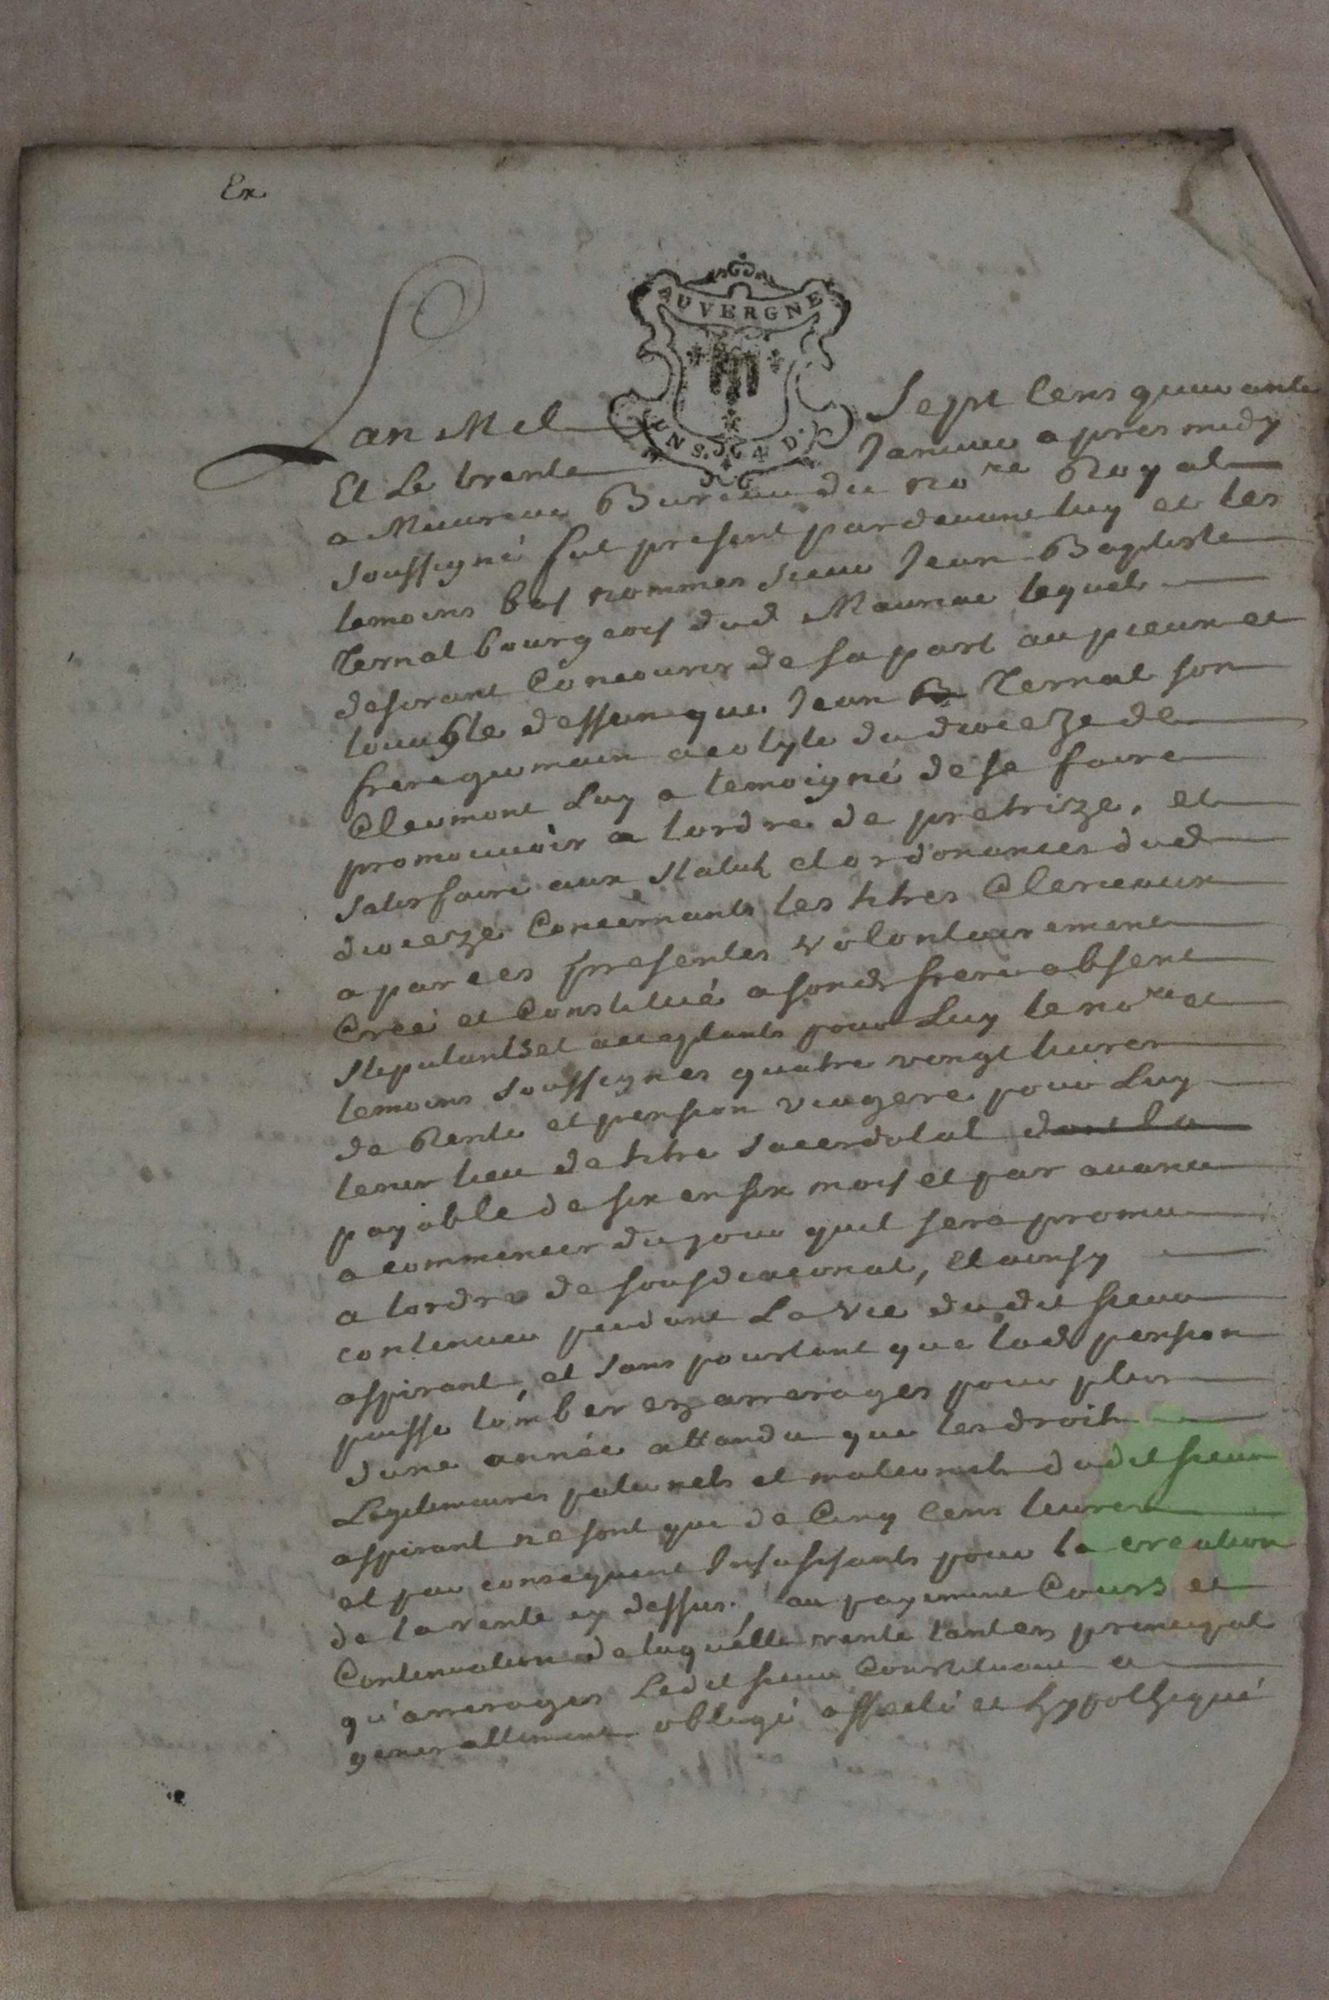 Ex
AUVERGNE
INS. 4 D.
Lan Mil Sept Cens quarante
Et Le trente Janvier apres midy
a Mauriac Bureau du nore Royal
soussigné fut present pardevant luy et les
temoins bas nommes sieur Jean Baptiste
Ternat bourgeois dud Mauriac lequel
desirant Concourir de sa part au pieux et
louable dessein que Jean Ternat son
frere germain acolyte du dioceze de
Clermont Luy a temoigné de se faire
promouvoir a lordre de pretrize, et
satisfaire aux statuts et ordonances dud
dioceze Concernants les titres Clericaux
a par ces presentes volontairement
Creé et Constitué a sond frere absent
stipulants et acceptants pour Luy le nore et
temoins soussignes quatre vingt livres
de Rente et pension viagere pour Luy
tenir lieu de titre sacerdotal dont la
payable de six en six mois et par avance
a commencer du jour quil sera promu
a lordre de sousdiaconat, Et ainsy
continuer pendant La vie du dit sieur
aspirant, et sans pourtant que lad pension
puisse tomber en arrerages pour plus
dune année attandu que les droits
Legitimaires paternels et maternels dudit sieur
aspirant ne sont que de Cinq Cens livres
et par consequent Insufisants pour la creation
de la rente cy dessus. au payement Cours et
Continuation de laquelle rente tant en principal
qu'arrerages Ledit sieur Constituant a
generallement obligé affecté et hypothequé